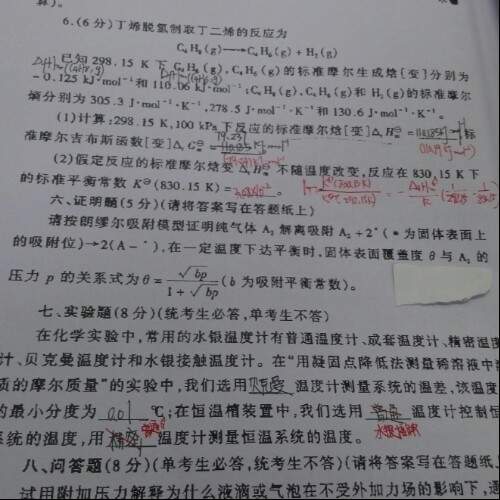 算)。
6.(6 分)丁烯脱氢制取丁二烯的反应为
C₄H₈(g)⟶C₄H₆(g)+H₂(g)
已知 298.15 K 下 C₄H₈(g),C₄H₆(g)的标准摩尔生成焓[变]分别为
-0.125 kJ·mol⁻¹和 110.06 kJ·mol⁻¹;C₄H₈(g),C₄H₆(g)和 H₂(g)的标准摩尔
熵分别为 305.3 J·mol⁻¹·K⁻¹,278.5 J·mol⁻¹·K⁻¹和 130.6 J·mol⁻¹·K⁻¹。
(1)计算:298.15 K,100 kPa 下反应的标准摩尔焓[变]ΔᵣHₘ⊖= 标
准摩尔吉布斯函数[变]ΔᵣGₘ⊖=
(2)假定反应的标准摩尔焓变 ΔᵣHₘ⊖ 不随温度改变,反应在 830.15 K 下
的标准平衡常数 K⊖(830.15 K)=
六、证明题(5 分)(请将答案写在答题纸上)
请按朗缪尔吸附模型证明纯气体 A₂ 解离吸附 A₂+2*(*为固体表面上
的吸附位)→2(A-*),在一定温度下达平衡时,固体表面覆盖度 θ 与 A₂ 的
压力 p 的关系式为 θ=√bp/(1+√bp)(b 为吸附平衡常数)。
七、实验题(8 分)(统考生必答,单考生不答)
在化学实验中,常用的水银温度计有普通温度计、成套温度计、精密温度
计、贝克曼温度计和水银接触温度计。在“用凝固点降低法测量稀溶液中
质的摩尔质量”的实验中,我们选用 温度计测量系统的温差,该温度
的最小分度为 0.01 ℃;在恒温槽装置中,我们选用 温度计控制恒
水银接触
系统的温度,用 温度计测量恒温系统的温度。
八、问答题(8 分)(单考生必答,统考生不答)(请将答案写在答题纸
试用附加压力解释为什么液滴或气泡在不受外加力场的影响下,